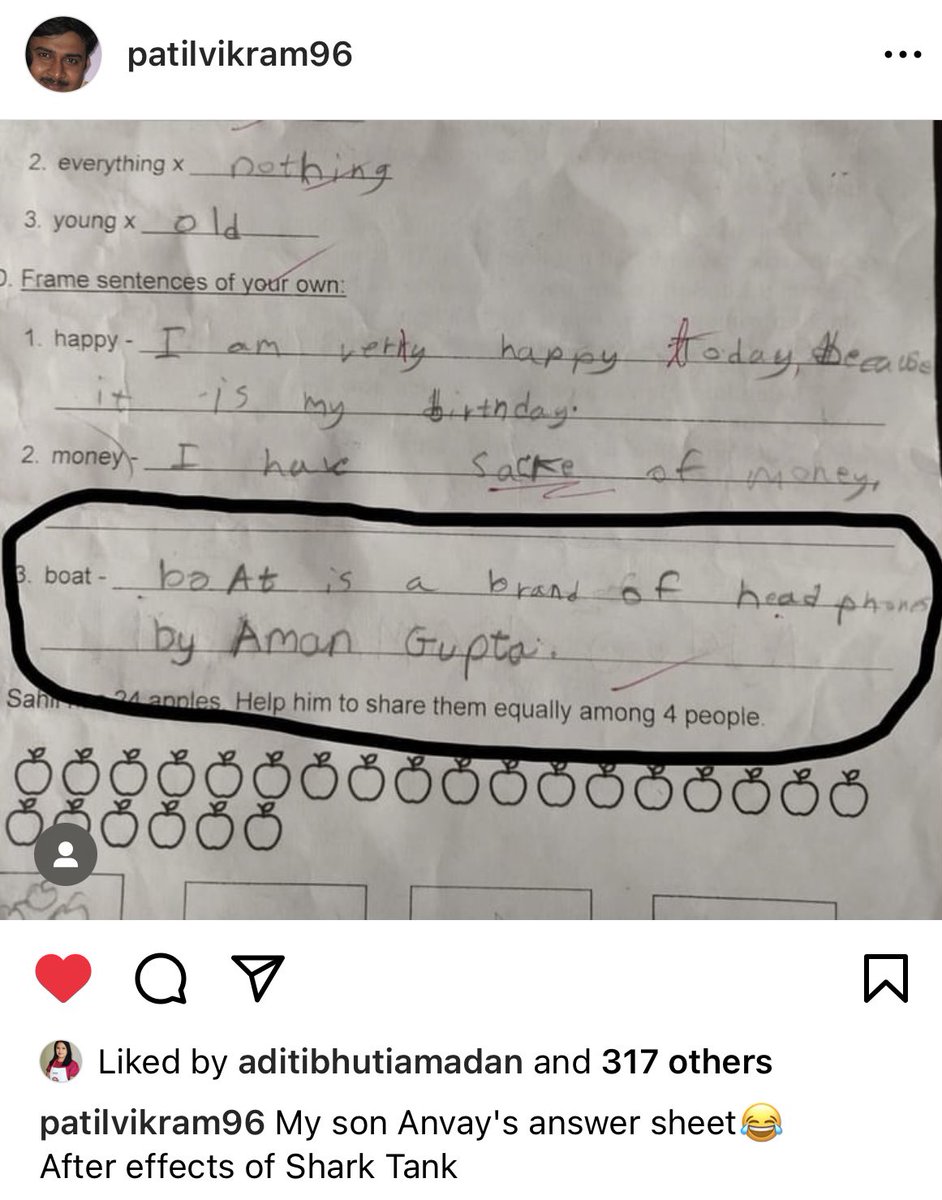 patilvikram96
2. everything x nothing
3. young x old
D. Frame sentences of your own:
1. happy - I am very happy today, because
it is my birthday.
2. money - I have sacke of money,
3. boat - boAt is a brand of head phones
by Aman Gupta.
Sahil 24 apples. Help him to share them equally among 4 people.
Liked by aditibhutiamadan and 317 others
patilvikram96 My son Anvay's answer sheet😂
After effects of Shark Tank